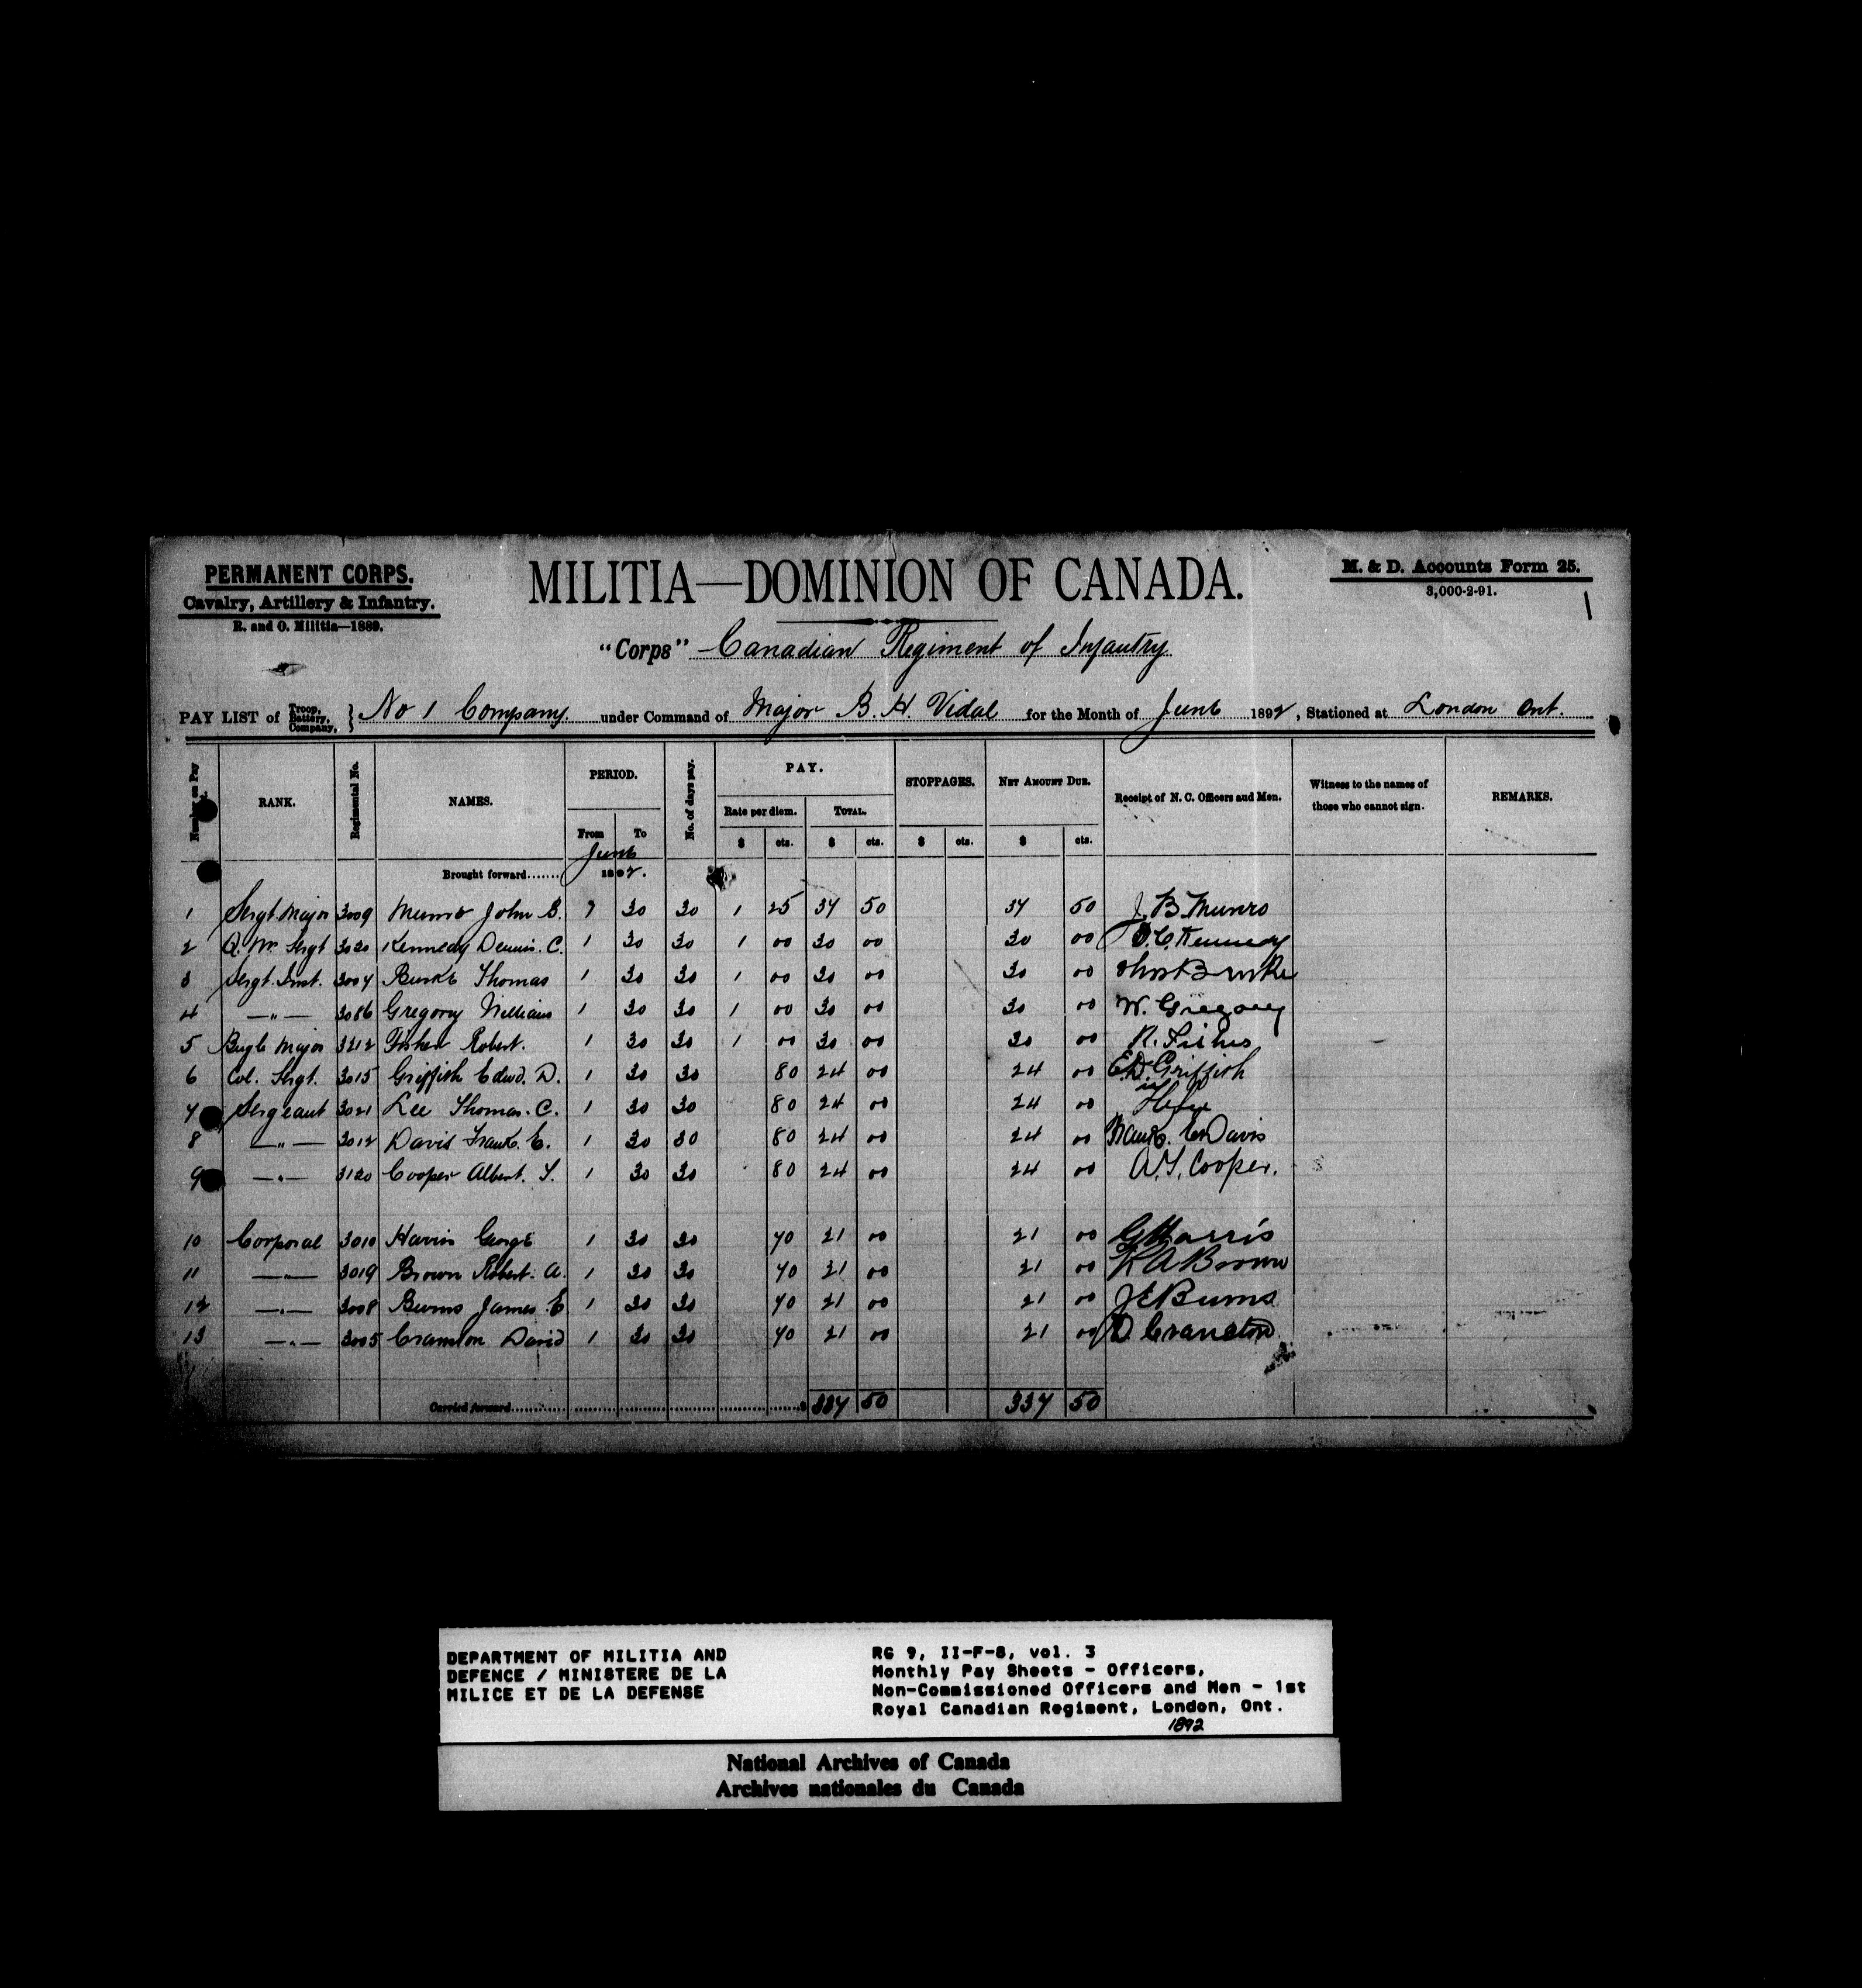 PERMANENT CORPS.
Cavalry, Artillery & Infantry.
R. and O. Militia—1889.
MILITIA—DOMINION OF CANADA.
M. & D. Accounts Form 25.
3,000-2-91.
1
"Corps" Canadian Regiment of Infantry
PAY LIST of Troop, Battery, Company, } No 1 Company. under Command of Major B. H. Vidal for the Month of June 1892, Stationed at London Ont.
Number on Pay RANK. Regimental No. NAMES. PERIOD. No. of days pay. PAY. STOPPAGES. NET AMOUNT DUE. Receipt of N. C. Officers and Men. Witness to the names of those who cannot sign. REMARKS.
Rate per diem. TOTAL.
From To $ cts. $ cts. $ cts. $ cts.
Brought forward....... June 1892.
1 Sergt. Major 3009 Munro John B. 1 30 30 1 25 37 50 37 50 J. B. Munro
2 Q. Mr. Sergt 3020 Kennedy Dennis. C. 1 30 30 1 00 30 00 30 00 D. C. Kennedy
3 Sergt. Inst. 3004 Burke Thomas 1 30 30 1 00 30 00 30 00 Thos Burke
4 —"— 3086 Gregory William 1 30 30 1 00 30 00 30 00 W. Gregory
5 Bugle Major 3212 Fisher Robert. 1 30 30 1 00 30 00 30 00 R. Fisher
6 Col. Sergt. 3015 Griffith Edwd. D. 1 30 30 80 24 00 24 00 E.D. Griffith
7 Sergeant 3021 Lee Thomas. C. 1 30 30 80 24 00 24 00
8 —"— 3012 Davis Frank. E. 1 30 30 80 24 00 24 00 Frank. E. Davis
9 —"— 3120 Cooper Albert. T. 1 30 30 80 24 00 24 00 A. T. Cooper.
10 Corporal 3010 Harris George 1 30 30 70 21 00 21 00 G Harris
11 —"— 3019 Brown Robert. A. 1 30 30 70 21 00 21 00 R A Brown
12 —"— 3008 Burns James. E 1 30 30 70 21 00 21 00 J E Burns
13 —"— 3005 Cranston David 1 30 30 70 21 00 21 00 D. Cranston
Carried forward.......... $ 337 50 337 50
DEPARTMENT OF MILITIA AND
DEFENCE / MINISTERE DE LA
MILICE ET DE LA DEFENSE
RG 9, II-F-8, vol. 3
Monthly Pay Sheets - Officers,
Non-Commissioned Officers and Men - 1st
Royal Canadian Regiment, London, Ont.
1892
National Archives of Canada
Archives nationales du Canada